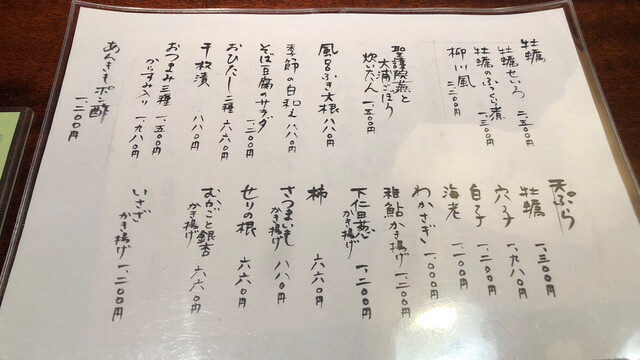 牡蠣
牡蠣せいろ 二、五〇〇円
牡蠣のふっくら煮 一、三〇〇円
柳川風 二、二〇〇円
聖護院蕪と
大浦ごぼう
炊いたん 一、一五〇円
風呂ふき大根 八八〇円
季節の白和え 八八〇円
そば豆腐のサラダ 一、二〇〇円
おひたし二種 六六〇円
千枚漬 八八〇円
おつまみ三種 一、五〇〇円
からすみ入り 一、九八〇円
あんきもポン酢 一、二〇〇円
天ぷら
牡蠣 一、三〇〇円
穴子 一、九八〇円
白子 一、二〇〇円
海老 一、一〇〇円
わかさぎ 一、〇〇〇円
稚鮎かき揚げ 一、二〇〇円
下仁田葱
かき揚げ 一、二〇〇円
柿 六六〇円
さつまいも
かき揚げ 八八〇円
せりの根 六六〇円
むかごと銀杏
かき揚げ 六六〇円
いさざ
かき揚げ 一、二〇〇円